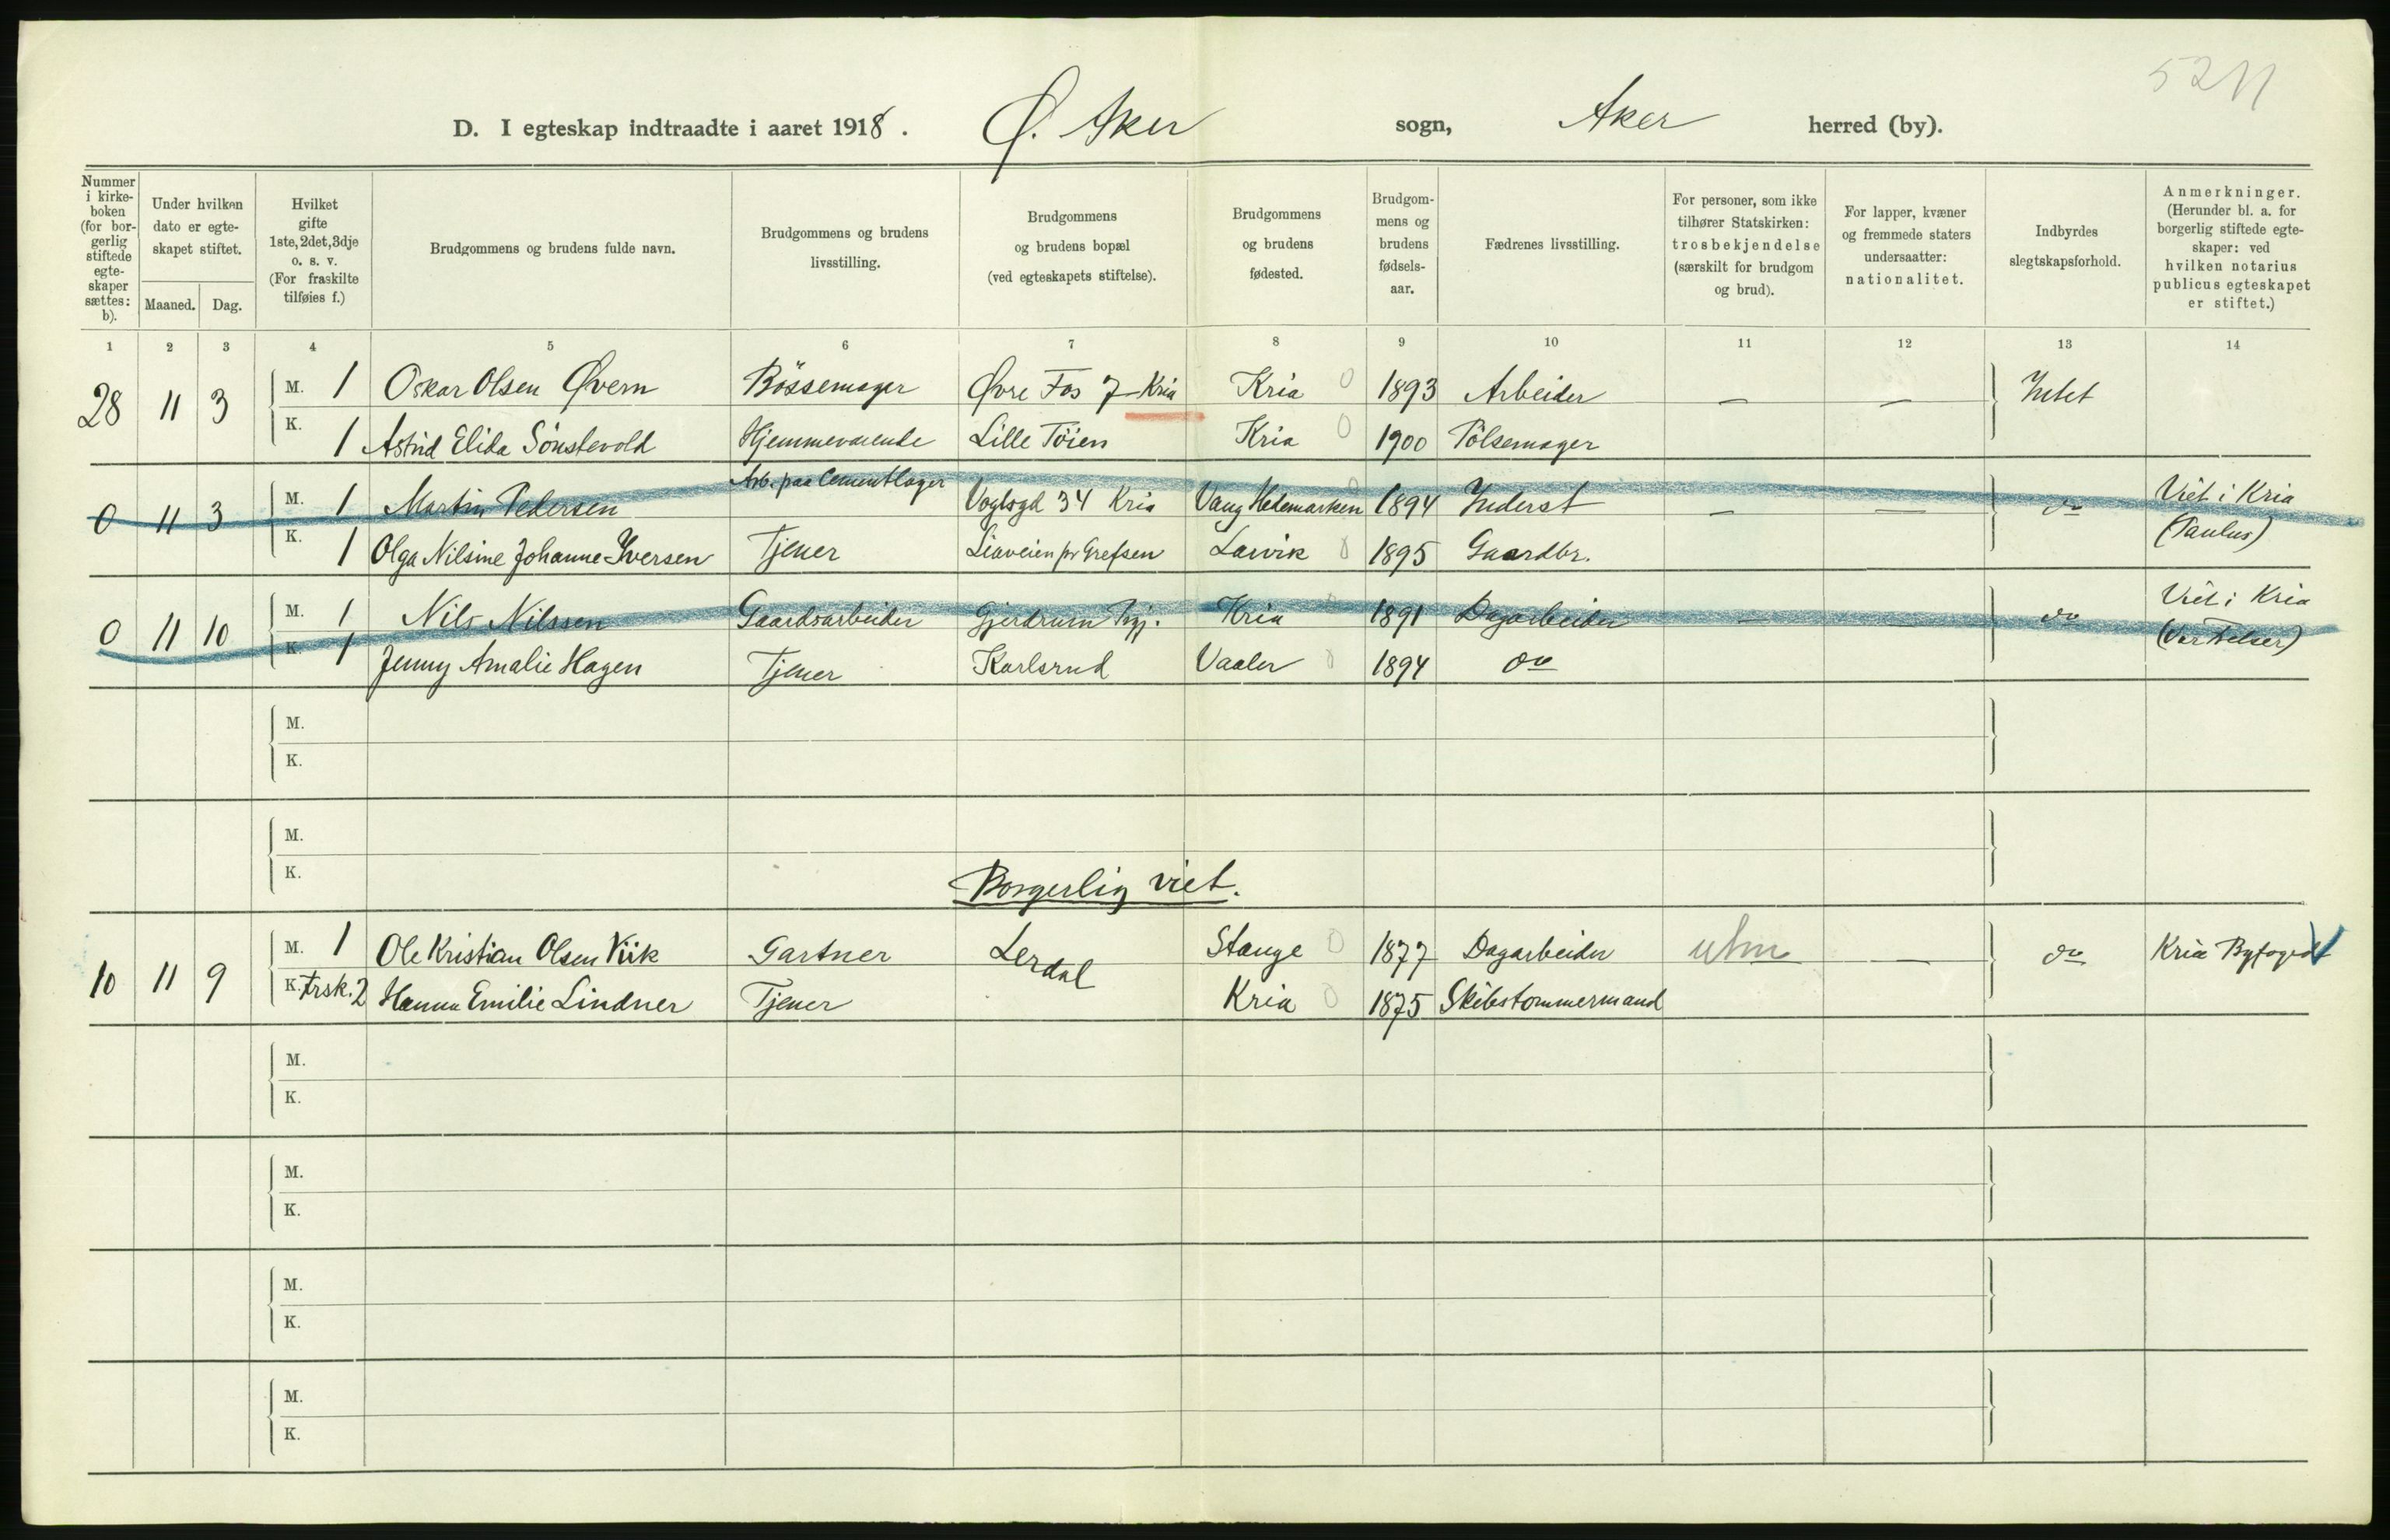 52 11
D. I egteskap indtraadte i aaret 1918. Ø. Aker sogn, Aker herred (by).
Nummer i kirke-boken (for bor-gerlig stiftede egte-skaper sættes: b).
Under hvilken dato er egte-skapet stiftet.
Maaned. Dag.
Hvilket gifte 1ste, 2det, 3dje o. s. v. (For fraskilte tilføies f.)
Brudgommens og brudens fulde navn.
Brudgommens og brudens livsstilling.
Brudgommens og brudens bopæl (ved egteskapets stiftelse).
Brudgommens og brudens fødested.
Brudgom-mens og brudens fødsels-aar.
Fædrenes livsstilling.
For personer, som ikke tilhører Statskirken: trosbekjendelse (særskilt for brudgom og brud).
For lapper, kvæner og fremmede staters undersaatter: nationalitet.
Indbyrdes slegtskapsforhold.
Anmerkninger. (Herunder bl. a. for borgerlig stiftede egte-skaper: ved hvilken notarius publicus egteskapet er stiftet.)
1 2 3 4 5 6 7 8 9 10 11 12 13 14
28 11 3 M. 1 Oskar Olsen Øvern Bössemager Øvre Fos 7 Kria Kria 0 1893 Arbeider — — Intet
K. 1 Astrid Elida Sönstevold Hjemmeværende Lille Töien Kria 0 1900 Pölsemager
0 11 3 M. 1 Martin Pedersen Arb. paa Cementlager Vogtsgd 34 Kria Vang Hedemarken 1894 Inderst — — do Viet i Kria
K. 1 Olga Nilsine Johanne Iversen Tjener Liaveien pr Grefsen Larvik 0 1895 Gaardbr. (Paulus)
0 11 10 M. 1 Nils Nilssen Gaardsarbeider Gjerdrum Kria 1891 Dagarbeider — — do Viet i Kria
K. 1 Jenny Amalie Hagen Tjener Karlsrud Vaaler 0 1894 do
M.
K.
M.
K.
Borgerlig viet.
10 11 9 M. 1 Ole Kristian Olsen Viik Gartner Lerdal Stange 0 1877 Dagarbeider — do Kria Byfoged
K. frsk. 2 Hanna Emilie Lindner Tjener Kria 0 1875 Skibstømmermand
M.
K.
M.
K.
M.
K.
M.
K.